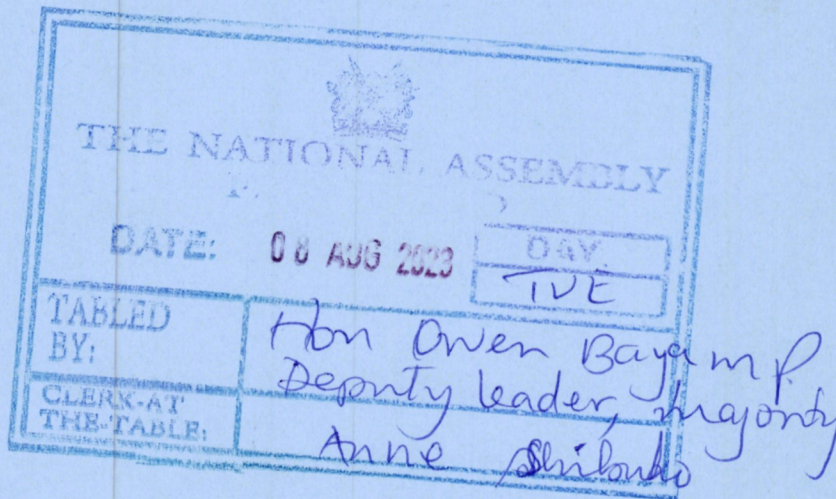 THE NATIONAL ASSEMBLY
DATE: 08 AUG 2023
DAY.
TUE
TABLED BY:
Hon Owen Baya M.P.
Deputy Leader, Majority
CLERK-AT THE-TABLE:
Anne